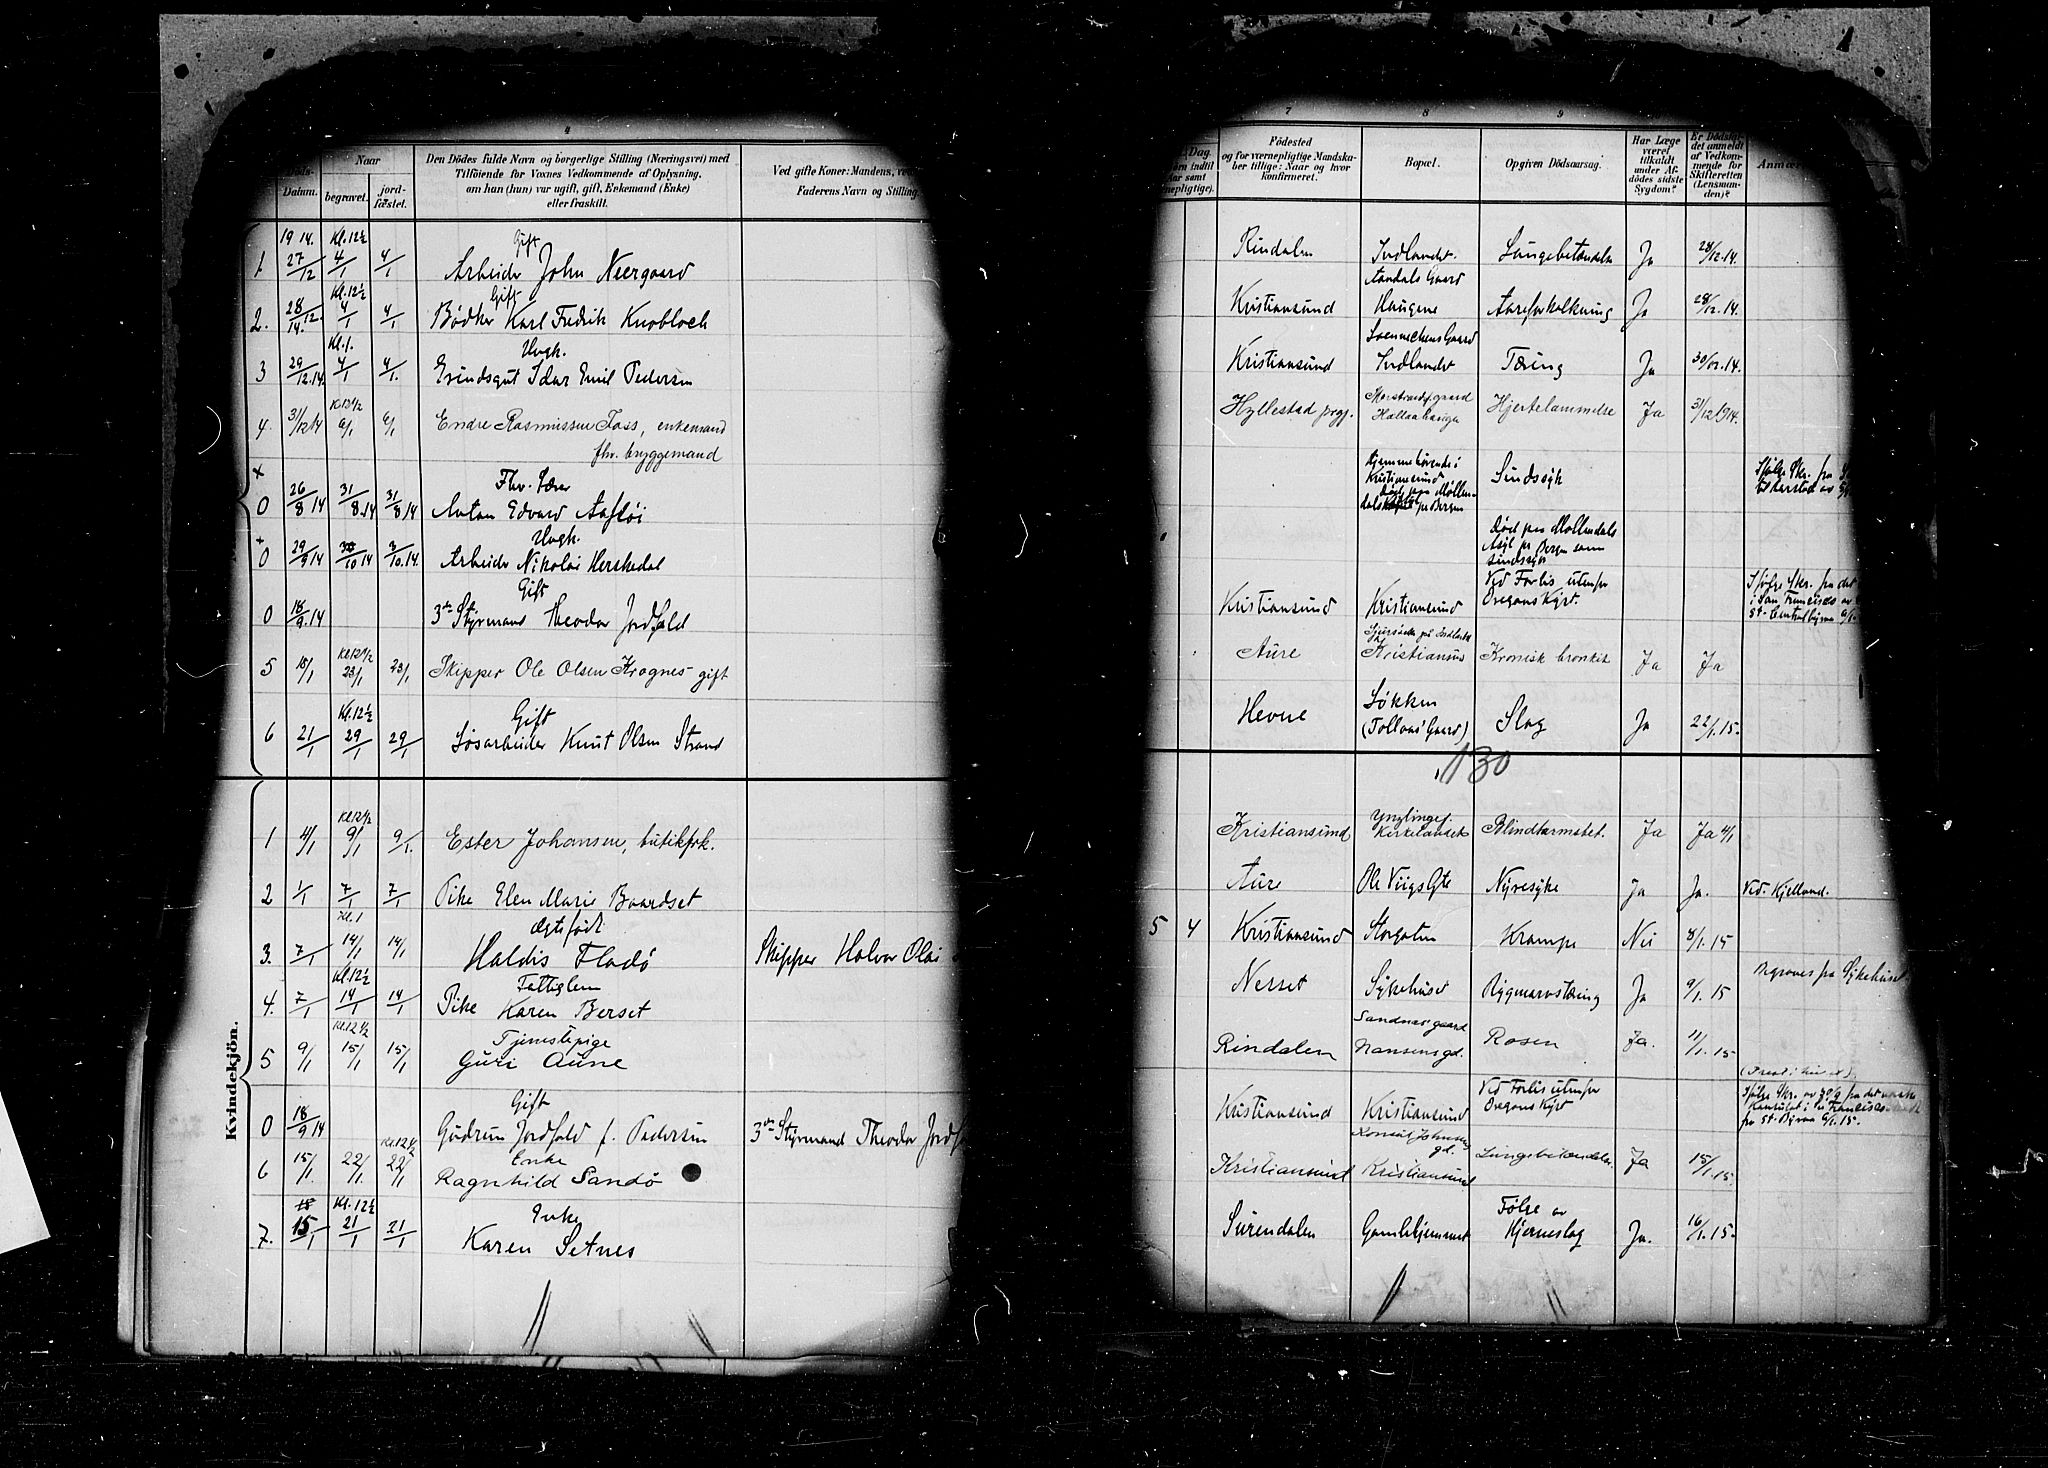 4
Døds-
Datum.
Naar
begravet.
jord-
fæstet.
Den Dödes fulde Navn og borgerlige Stilling (Næringsvei) med
Tilföiende för Voxnes Vedkommende af Oplysning,
om han (hun) var ugift, gift, Enkemand (Enke)
eller fraskilt.
Ved gifte Koner: Mandens, ved
Faderens Navn og Stilling
1914. Kl. 12½ Gift
1. 27/12 4/1 4/1 Arbeider John Neergaard
Kl. 12½ Gift
2. 28/12 14. 4/1 4/1 Bødker Karl Fredrik Knobloch
Kl. 1. Ungk.
3 29/12.14. 4/1 4/1. Erindsgut Idar Emil Pedersen
Kl 12½
4. 31/12 14 6/1 6/1 Endre Rasmussen Foss, enkemand
fhv. bryggemand
x Fhv. Lærer
0 26/8 14 31/8.14 31/8 14 Anton Edvard Aafløi
+ Ungk.
0 29/9 14 30/10 14 3/10.14. Arbeider Nikolai Herskedal
Gift
0 18/9.14 3die Styrmand Theodor Jordfald
Kl 12½
5 18/1 23/1 23/1 Skipper Ole Olsen Krognes gift
Kl. 12½ Gift
6 21/1 29/1 29/1 Løsarbeider Knut Olsen Strand
Kvindekjön.
Kl 12½
1 4/1 9/1 9/1. Ester Johansen, butikfrk.
2 1/1 7/1 7/1 Pike Elen Marie Baardset
Kl. 1 Ægtefødt
3. 7/1 14/1 14/1 Haldis Fladø Skipper Halvor Olai
Kl. 12½ Fattiglem
4. 7/1 14/1 14/1 Pike Karen Berset
Kl. 12½ Tjenestepige
5 9/1 15/1 15/1 Guri Aune
Gift
0 18/9 14 Gudrun Jordfald f. Pedersen 3die Styrmand Theodor Jordf
Kl. 12½ Enke
6 15/1. 22/1. 22/1 Ragnhild Sandø
18 Kl. 12½ Enke
7. 15/1 21/1 21/1 Karen Setnes
7 8 9
Dag
Födested
og for værnepligtige Mandska-
ber tillige: Naar og hvor
konfirmeret.
Bopæl.
Opgiven Dödsaarsag.
Har Læge
været
tilkaldt
under Af-
dödes sidste
Sygdom?
Er Dödsfal-
det anmeldt
af Vedkom-
mende for
Skifteretten
(Lensman-
den)?
Anmær
Rindalen Indlandet. Lungebetændelse Ja 28/12.14.
Aandals Gaard
Kristiansund Haugene Aareforkalkning Ja 28/12.14.
Kristiansund Indlandet Tæring Ja 30/12.14.
Hyllestad prgj. Hjertelammelse Ja 31/12 1914.
Hjemmehørende i
Kristiansund
død paa Møllen-
dals pr Bergen
Sindssyk
Ifølge Skr. fra
Død paa Møllendals
Asyl pr Bergen som
sindssyk
Kristiansund Kristiansund Ved Forlis utenfor
Oregons Kyst.
Ifølge Skr. fra det
i San Francisco
Aure Kristiansund Kronisk bronkit Ja Ja
Hevne Løkken
(Tollaas' Gaard) Slag Ja 22/1.15.
130
Kristiansund Kirkelandet Blindtarmsbet. Ja Ja 4/1
Aure Ole Viigs Gte Nyresyke Ja Ja. Ved. Kjelland.
5 4 Kristiansund Storgaten Krampe Nei 8/1.15
Nesset Sykehuset Rygmarvstæring Ja 9/1.15 Begraves fra Sykehuset
Sandnesgaard
Rindalen Hansensgd. Rosen Ja. 11/1.15
Kristiansund Kristiansund Ved Forlis utenfor
Oregons Kyst
Ifølge Skr. av 30/9 fra det norske
Konsulat i San Francisco
Kristiansund Kristiansund Lungebetændelse. Ja 15/1.15.
Surendalen Gamlehjemmet Følge av
Hjerneslag Ja. 16/1.15.